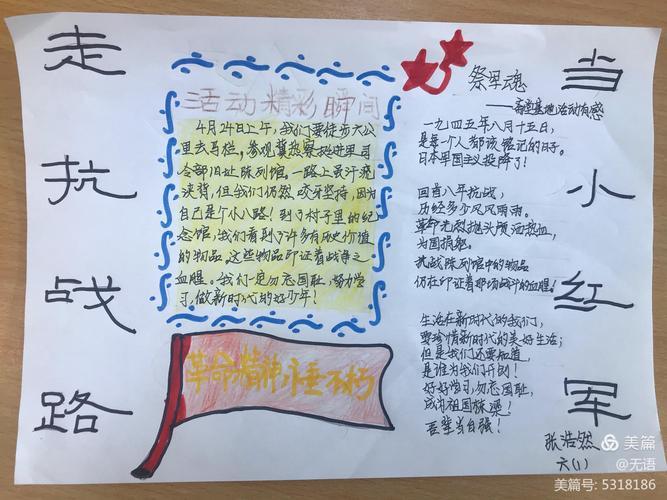 走抗战路
当小红军
活动精彩瞬间
4月24日上午，我们要徒步六公
里去马栏，参观冀热察挺进军司
令部旧址陈列馆。一路上汗流
浃背，但我们仍然咬牙坚持，因为
自己是个小八路！到了村子里的纪
念馆，我们看到了许多有历史价值
的物品。这些物品印证着战争之
血腥。我们一定勿忘国耻，努力学
习，做新时代的好少年！
革命精神，永垂不朽
祭军魂
活动有感
一九四五年八月十五日，
是每一个人都该铭记的日子。
日本军国主义投降了！
回首八年抗战，
历经多少风风雨雨。
革命先烈抛头颅洒热血，
为国捐躯。
抗战陈列馆中的物品
仍在印证着那场战斗的血腥！
生活在新时代的我们，
要珍惜新时代的美好生活；
但是我们还要知道，
是谁为我们开创！
好好学习，勿忘国耻，
成为祖国栋梁！
吾辈当自强！
张浩然
六(1)
美篇
@无语
美篇号: 5318186